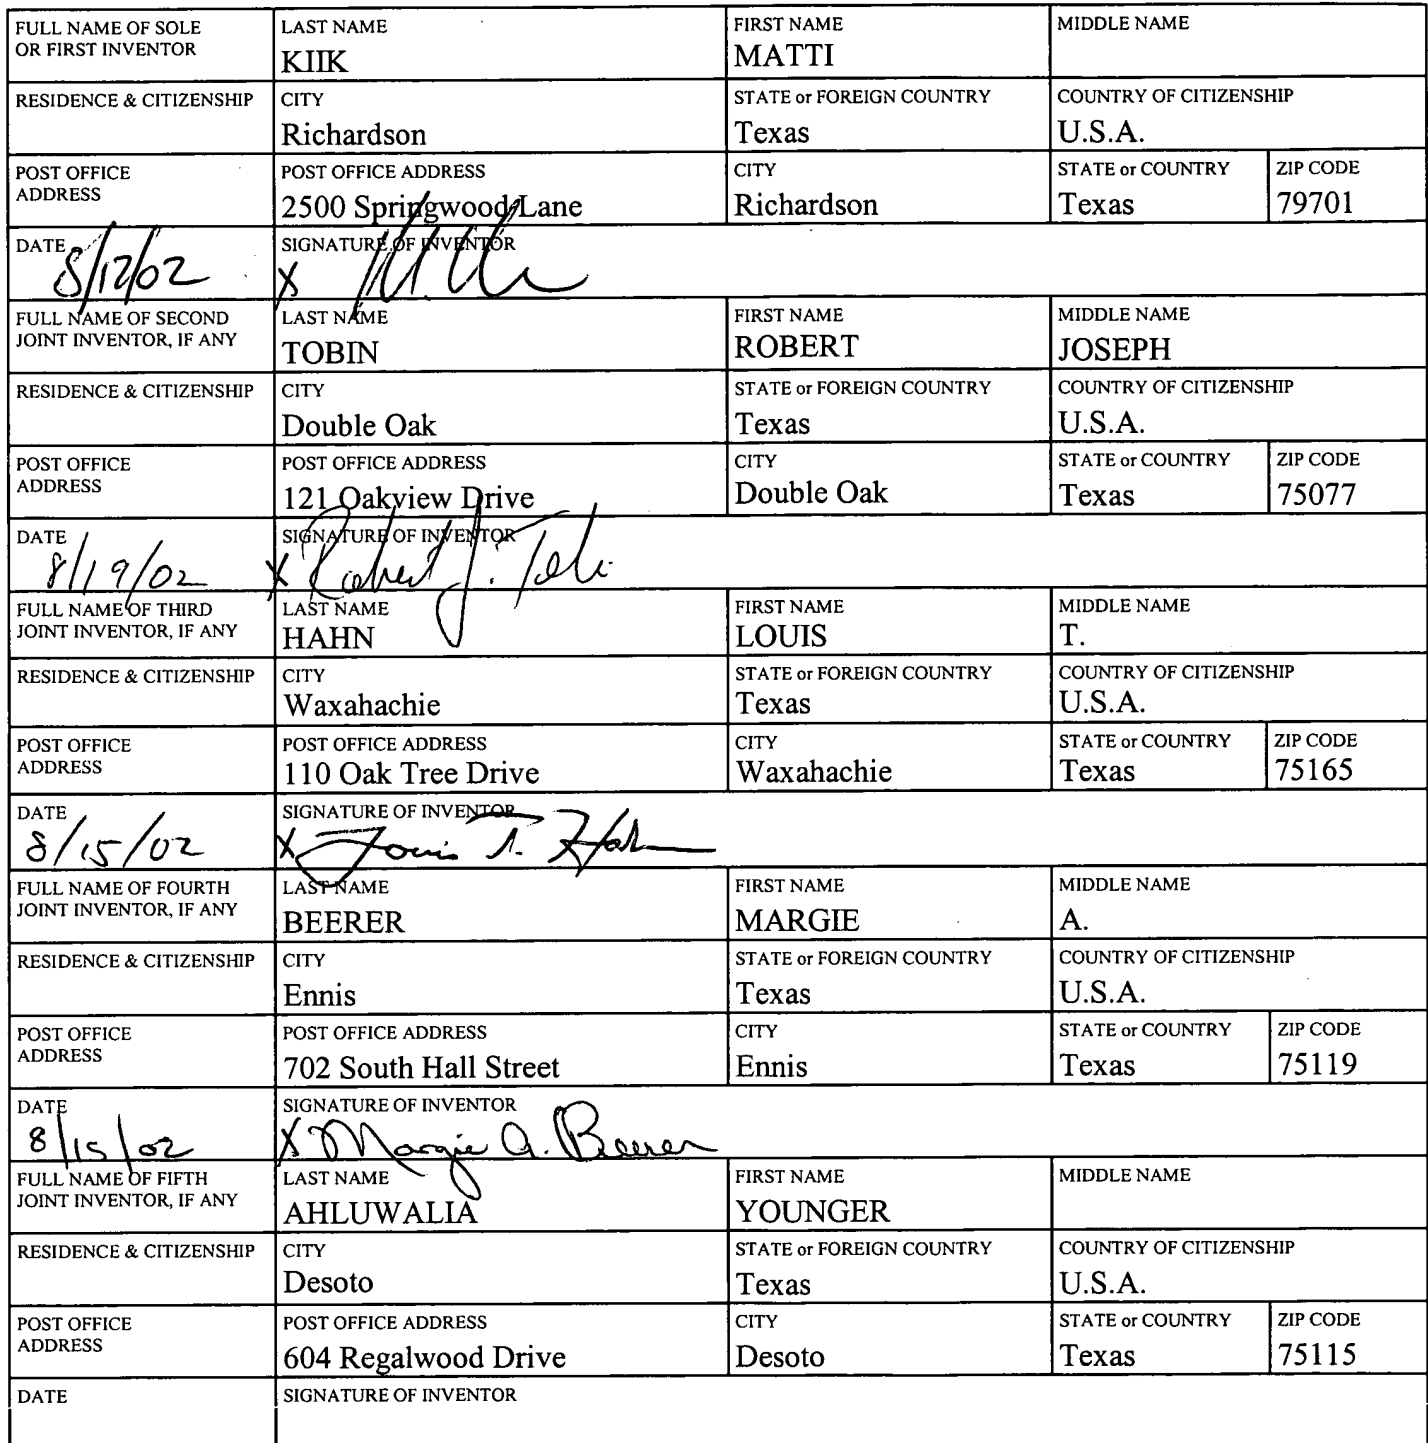 FULL NAME OF SOLE OR FIRST INVENTOR LAST NAME KIIK FIRST NAME MATTI MIDDLE NAME
RESIDENCE & CITIZENSHIP CITY Richardson STATE or FOREIGN COUNTRY Texas COUNTRY OF CITIZENSHIP U.S.A.
POST OFFICE ADDRESS POST OFFICE ADDRESS 2500 Springwood Lane CITY Richardson STATE or COUNTRY Texas ZIP CODE 79701
DATE 8/12/02 SIGNATURE OF INVENTOR X
FULL NAME OF SECOND JOINT INVENTOR, IF ANY LAST NAME TOBIN FIRST NAME ROBERT MIDDLE NAME JOSEPH
RESIDENCE & CITIZENSHIP CITY Double Oak STATE or FOREIGN COUNTRY Texas COUNTRY OF CITIZENSHIP U.S.A.
POST OFFICE ADDRESS POST OFFICE ADDRESS 121 Oakview Drive CITY Double Oak STATE or COUNTRY Texas ZIP CODE 75077
DATE 8/19/02 SIGNATURE OF INVENTOR X Robert J. Tobin
FULL NAME OF THIRD JOINT INVENTOR, IF ANY LAST NAME HAHN FIRST NAME LOUIS MIDDLE NAME T.
RESIDENCE & CITIZENSHIP CITY Waxahachie STATE or FOREIGN COUNTRY Texas COUNTRY OF CITIZENSHIP U.S.A.
POST OFFICE ADDRESS POST OFFICE ADDRESS 110 Oak Tree Drive CITY Waxahachie STATE or COUNTRY Texas ZIP CODE 75165
DATE 8/15/02 SIGNATURE OF INVENTOR X Louis T. Hahn
FULL NAME OF FOURTH JOINT INVENTOR, IF ANY LAST NAME BEERER FIRST NAME MARGIE MIDDLE NAME A.
RESIDENCE & CITIZENSHIP CITY Ennis STATE or FOREIGN COUNTRY Texas COUNTRY OF CITIZENSHIP U.S.A.
POST OFFICE ADDRESS POST OFFICE ADDRESS 702 South Hall Street CITY Ennis STATE or COUNTRY Texas ZIP CODE 75119
DATE 8/15/02 SIGNATURE OF INVENTOR X Margie A. Beerer
FULL NAME OF FIFTH JOINT INVENTOR, IF ANY LAST NAME AHLUWALIA FIRST NAME YOUNGER MIDDLE NAME
RESIDENCE & CITIZENSHIP CITY Desoto STATE or FOREIGN COUNTRY Texas COUNTRY OF CITIZENSHIP U.S.A.
POST OFFICE ADDRESS POST OFFICE ADDRESS 604 Regalwood Drive CITY Desoto STATE or COUNTRY Texas ZIP CODE 75115
DATE SIGNATURE OF INVENTOR